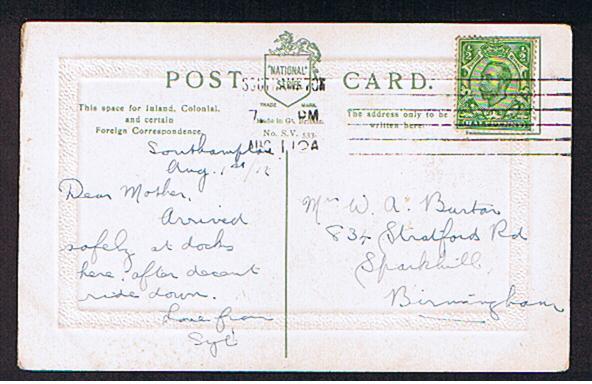 POST CARD.
"NATIONAL"
SERIES
TRADE MARK
Made in Gt. Britain.
No. S.V. 533.
This space for Inland, Colonial,
and certain
Foreign Correspondence.
The address only to be
written here.
SOUTHAMPTON
7 PM
AUG 1 12A
Southampton
Aug. 1st/12
Dear Mother,
Arrived
safely at docks
here. after decent
ride down.
Love from
Syl
Mrs W. A. Burton
834 Stratford Rd
Sparkhill,
Birmingham